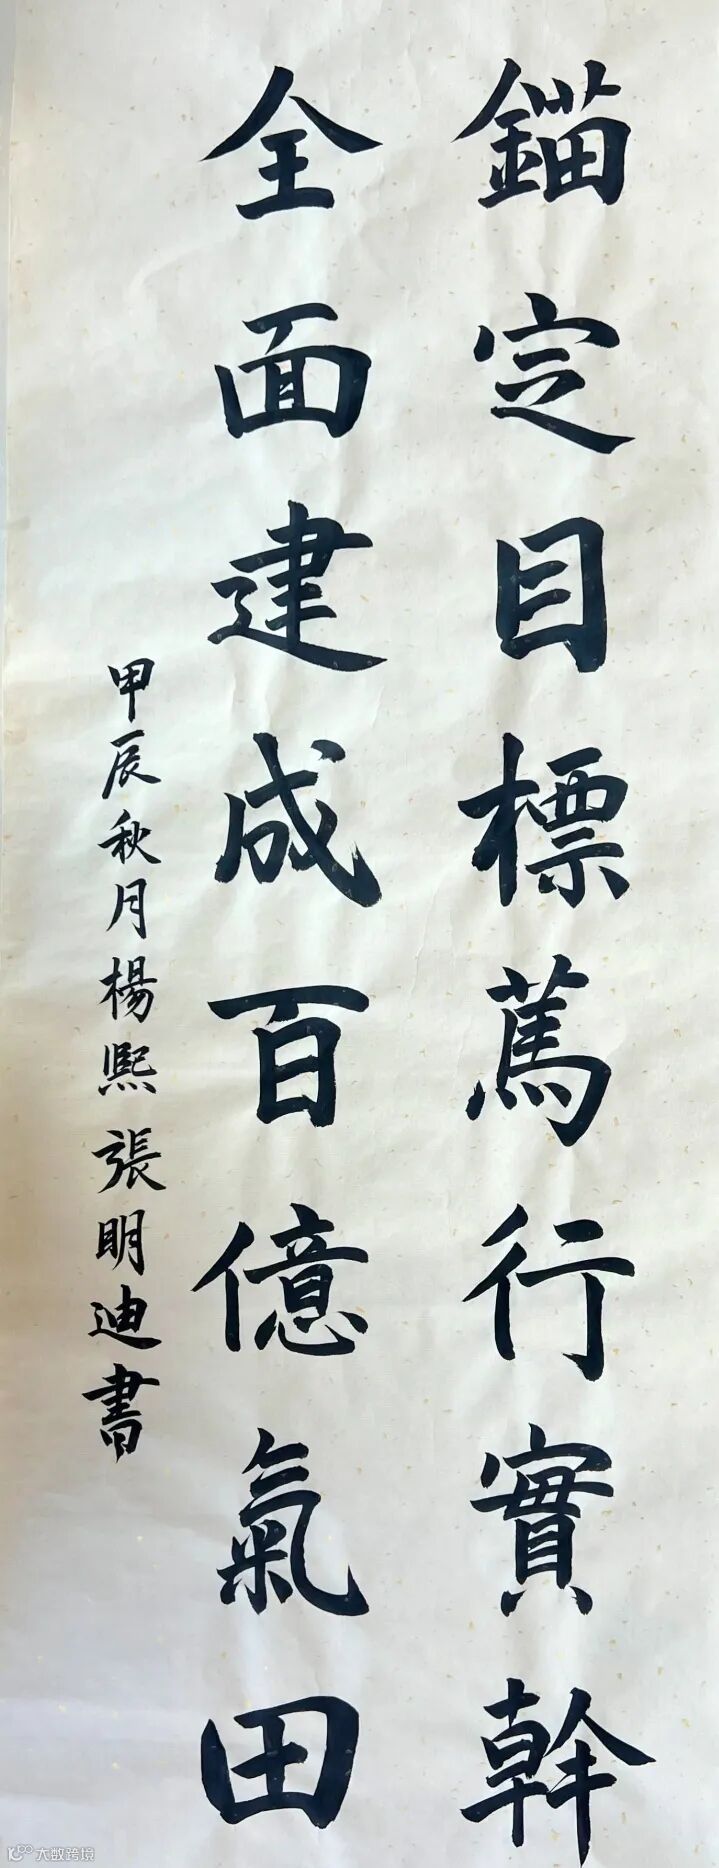 錨定目標篤行實幹
全面建成百億氣田
甲辰秋月楊熙張明迪書
大数跨境